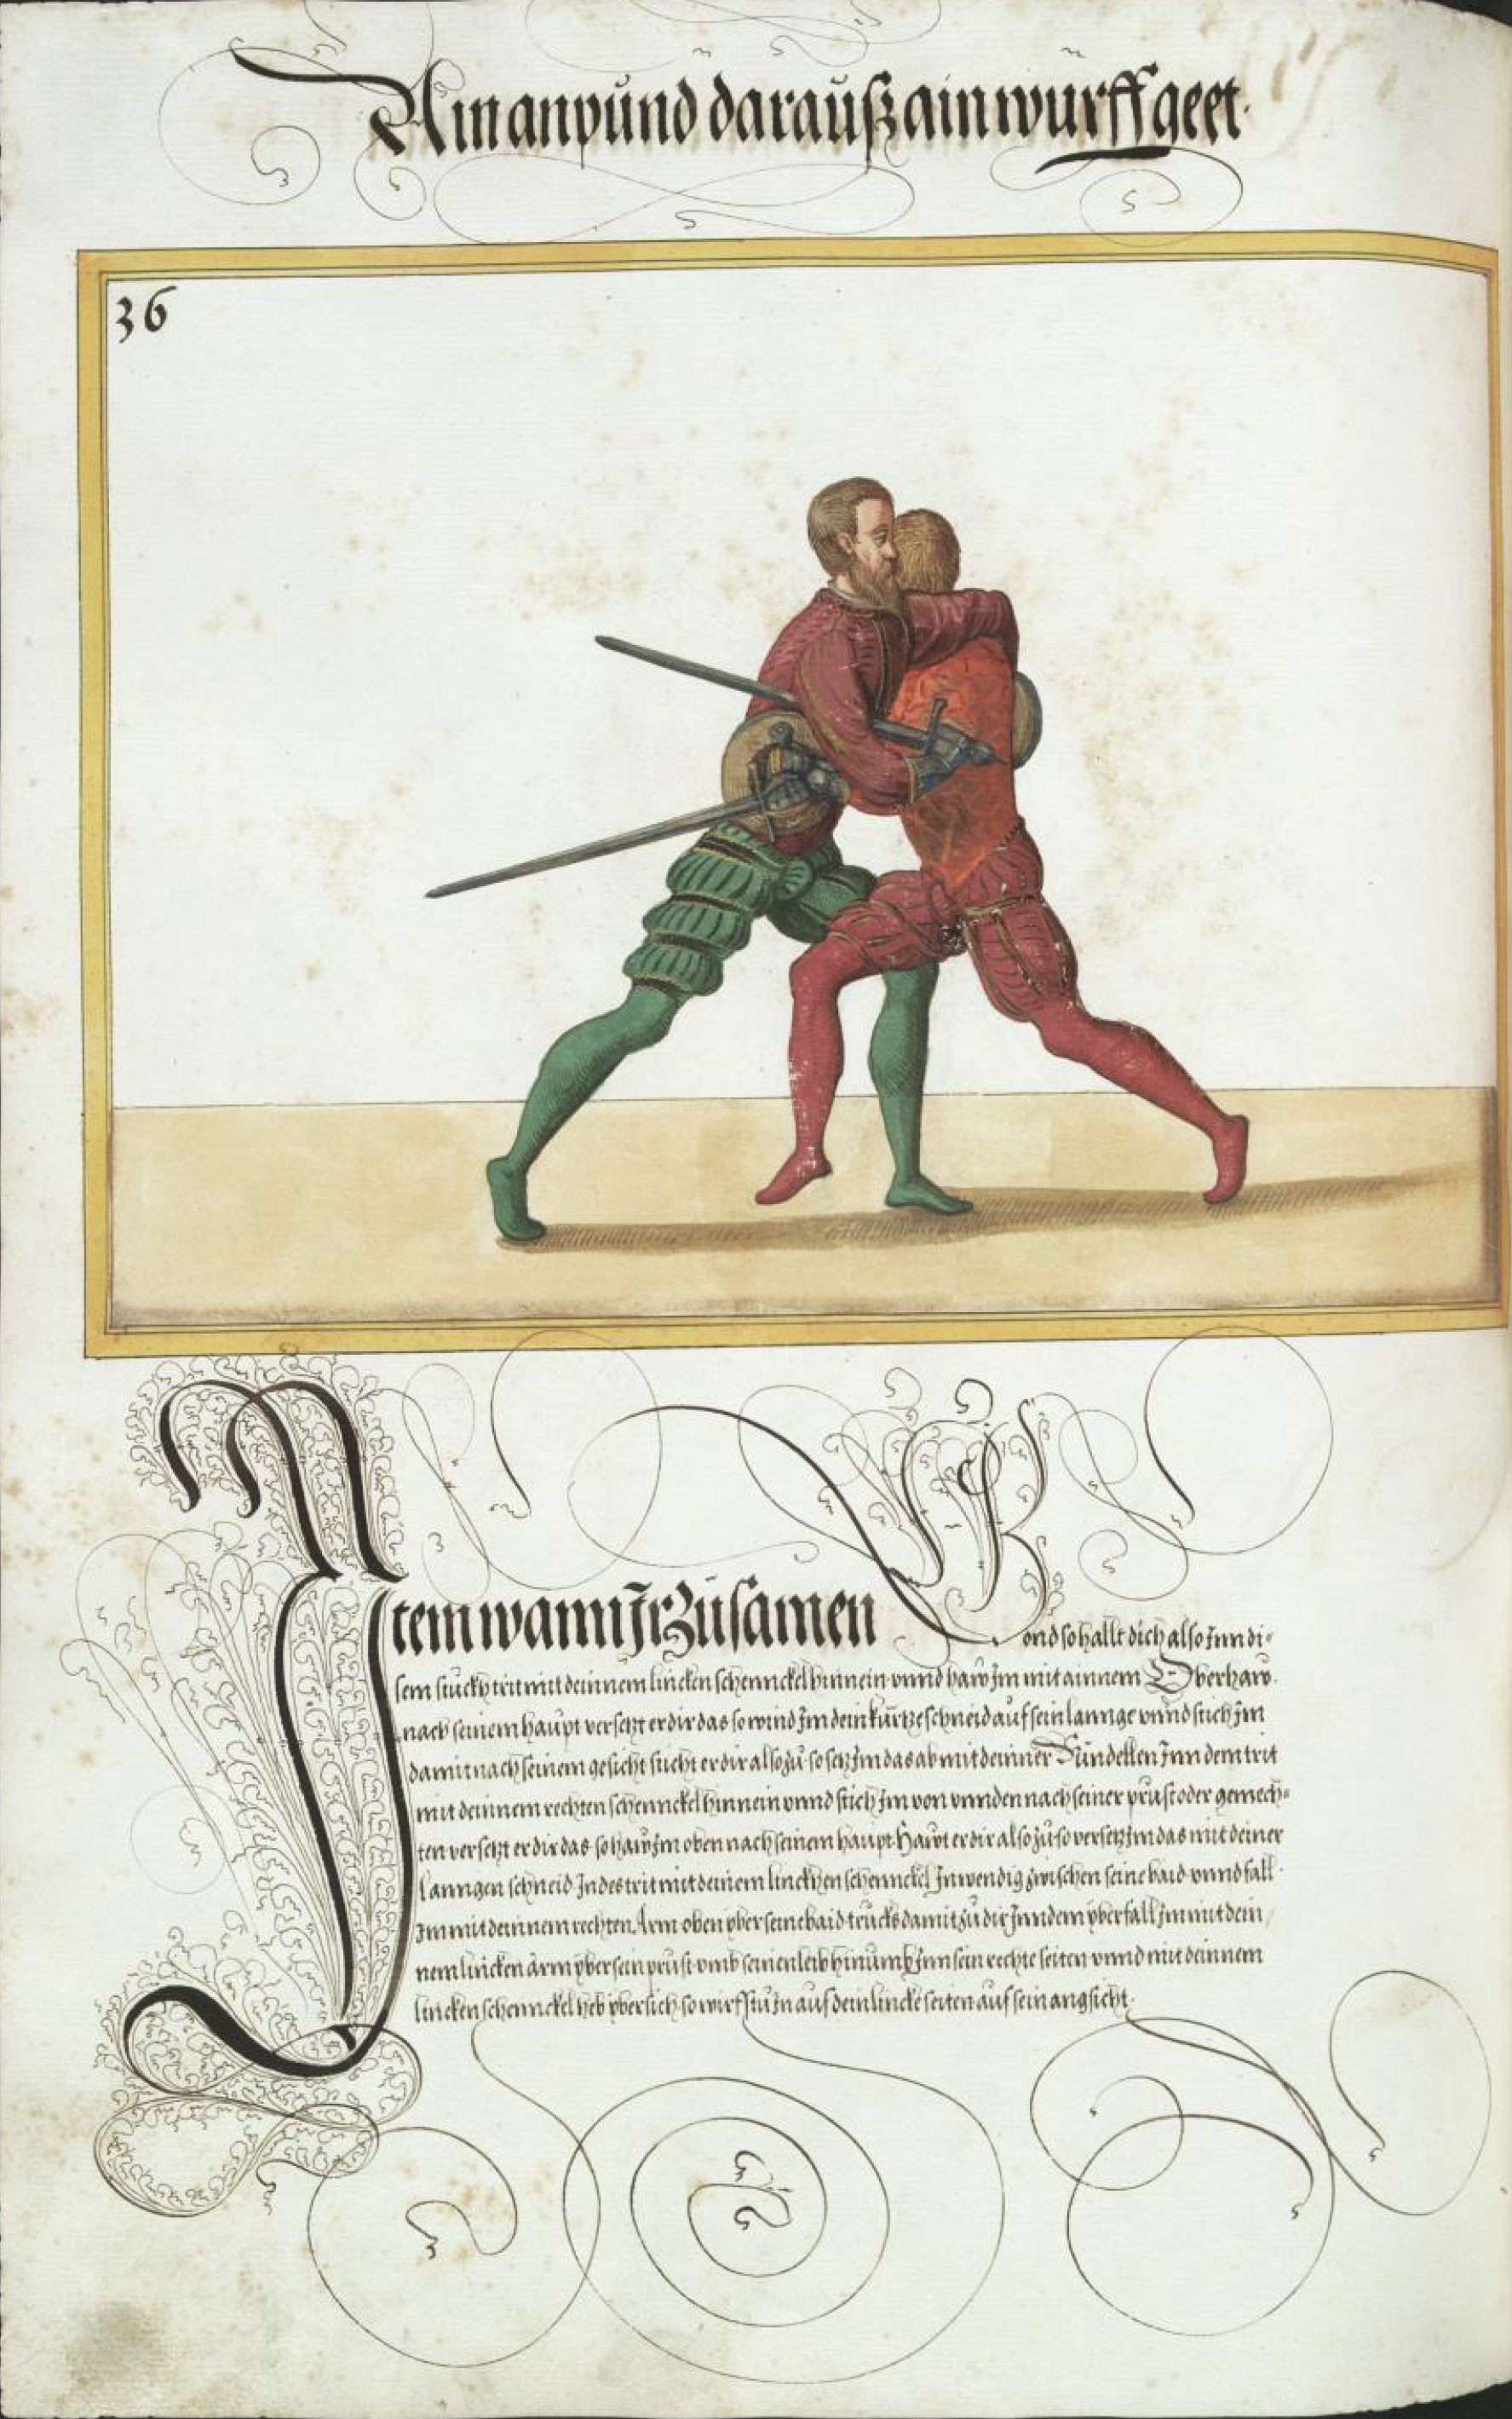 Ain anpünd darauß ain würff geet.
36
Item wann Ir zusamen kombt
ond so hallt dich also Inn di-
sem stuckh trit mit deinnem lincken schennckel hinnein vnnd haw Im mit ainnem Oberhaw.
nach seinem haupt versetzt er dir das so wind Im dein kürtze schneid auf sein lannge vnnd stich Im
damit nach seinem gesicht sticht er dir also zü so setz Im das ab mit deinner Inn dem trit
mit deinnem rechten schennckel hinnein vnnd stich Im von vnnden nach seiner prust oder gemech-
ten versetzt er dir das so haw Im oben nach seinem haupt Hawt er dir also zü so versetz Im das mit deiner
lanngen schneid Indes trit mit deinem linckhen schennckel Inwendig zwischen seine baid vnnd fall
Im mit deinnem rechten Arm oben yber seine baid trucks damit zü dir Inn dem yberfall Im mit dein
nem lincken arm yber sein prust vmb seinen leib hinumb Inn sein rechte seiten vnnd mit deinnem
lincken schennckel heb ybersich so wirfstu In auf dein lincke seiten auf sein angsicht.